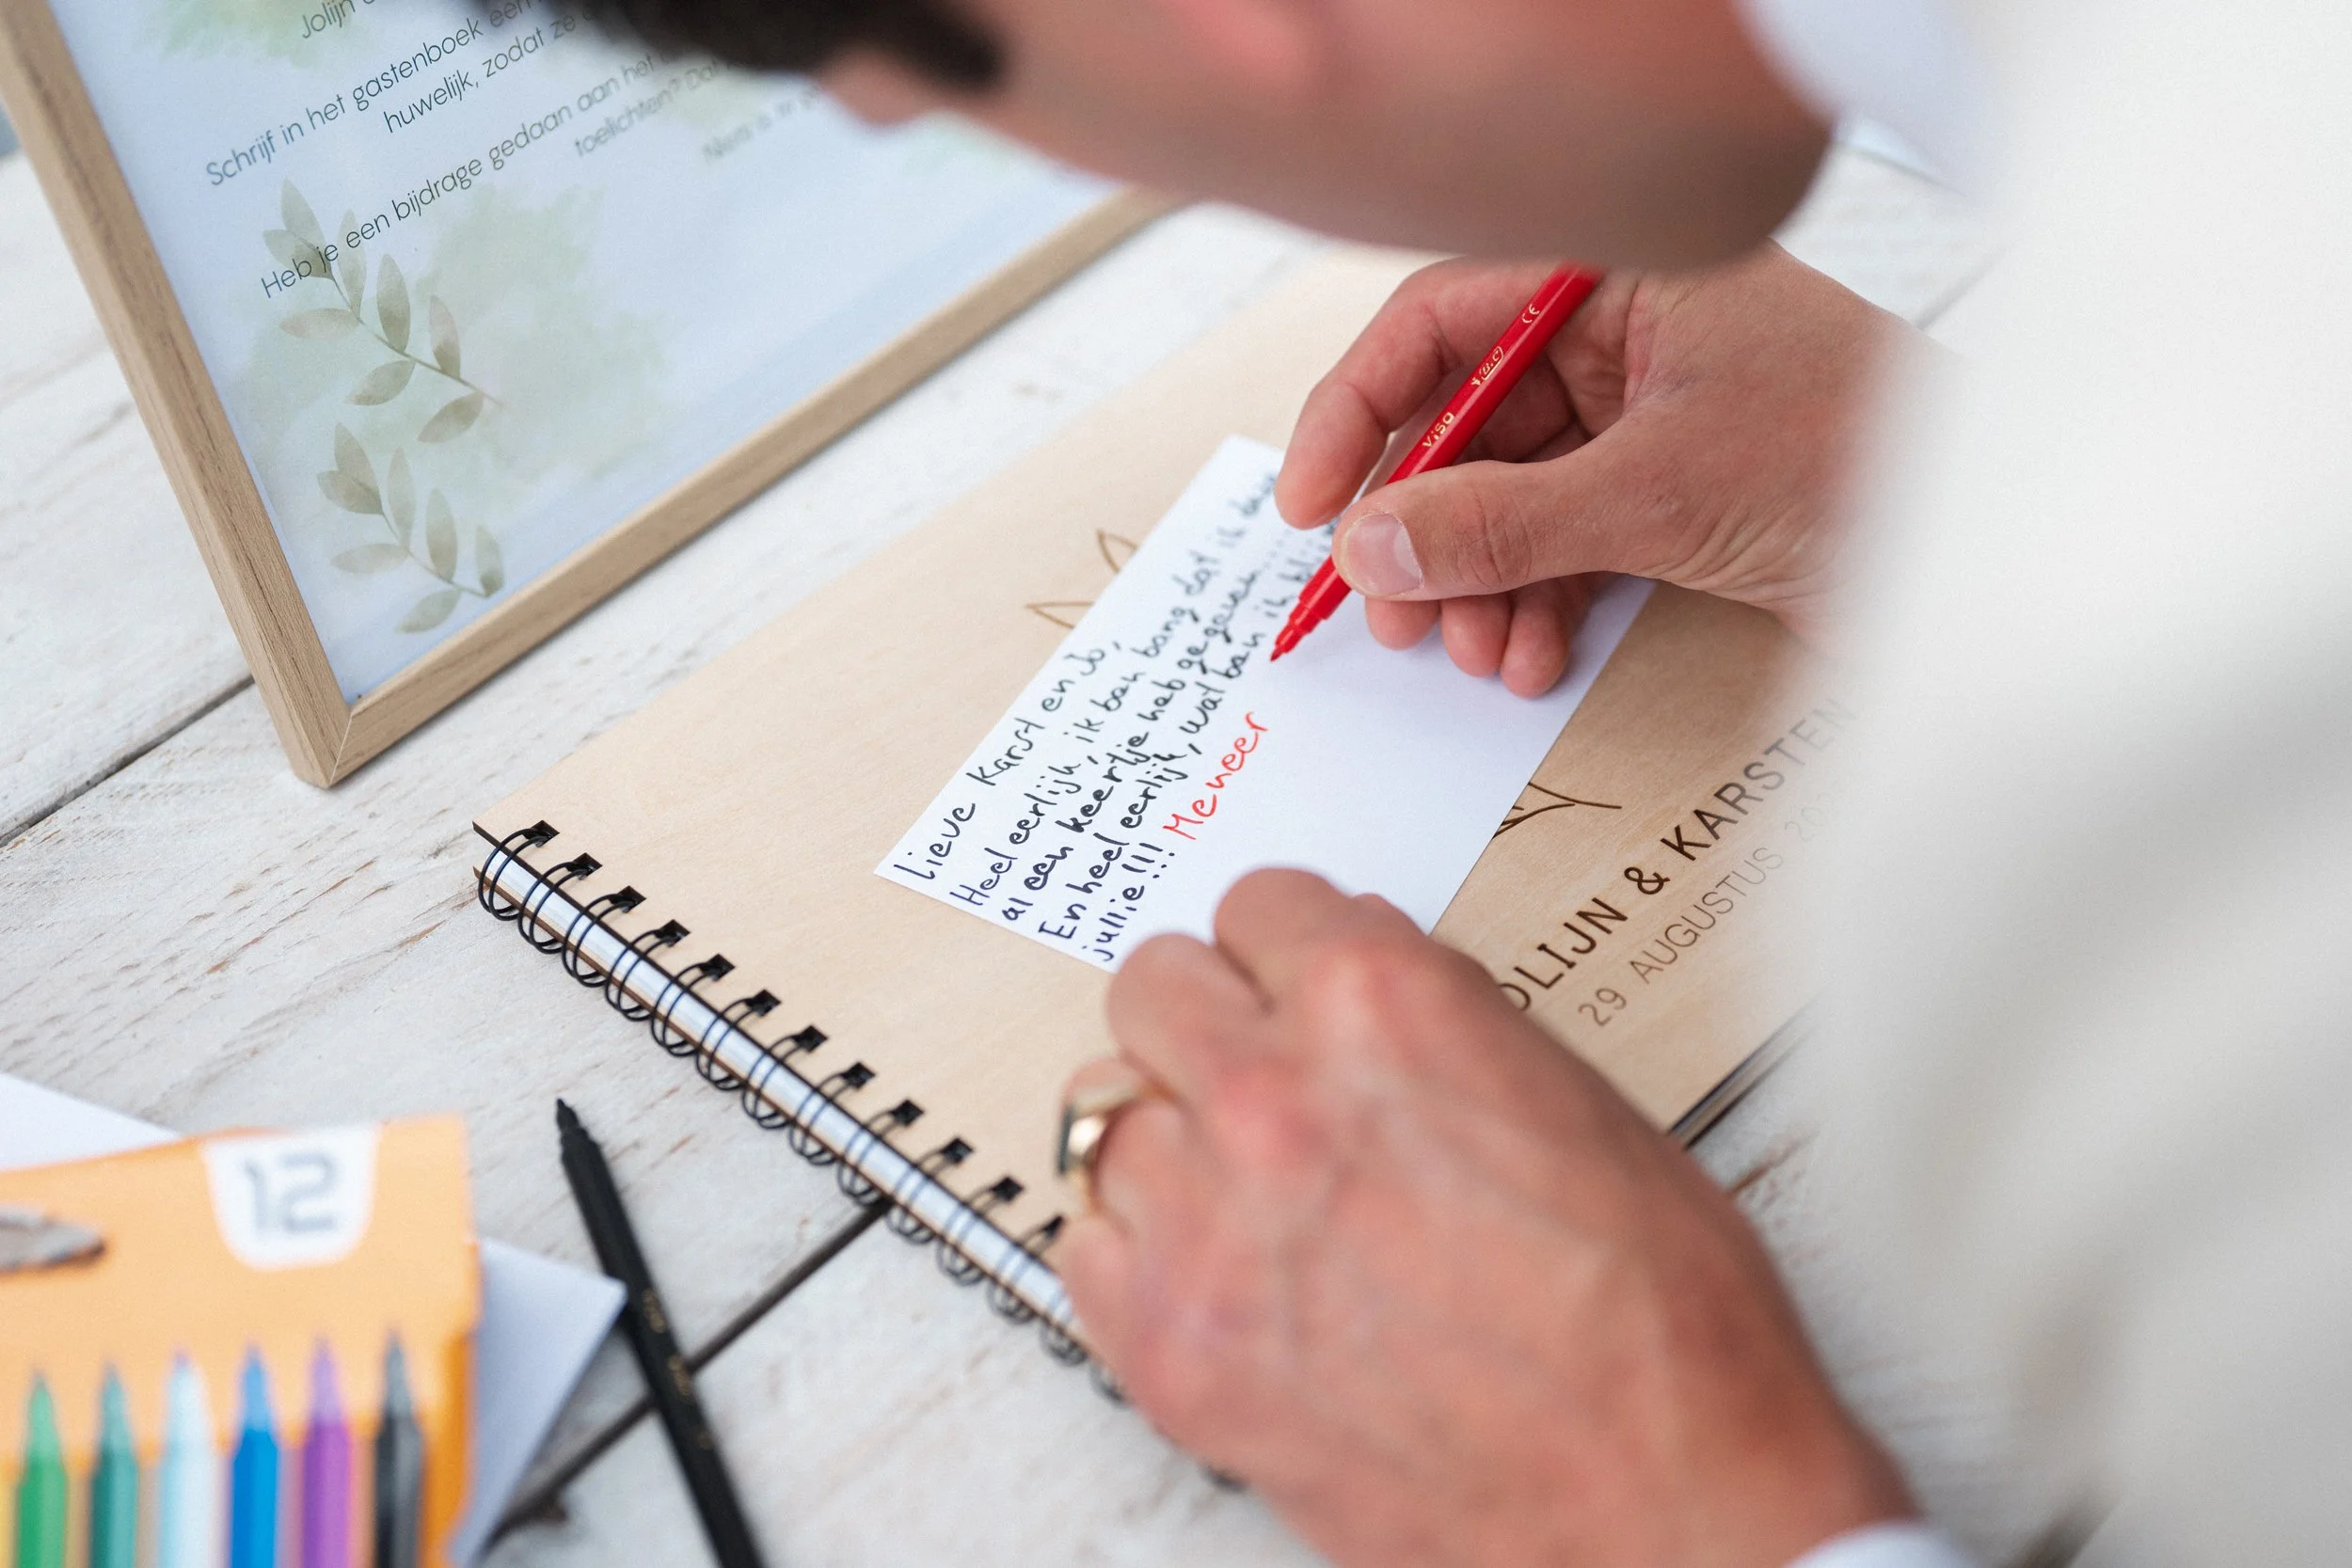 Jolijn
Schrijf in het gastenboek een
huwelijk, zodat ze
Heb je een bijdrage gedaan aan het
toelichten? Dat
Lieve Karst en Jo,
Heel eerlijk, ik ben bang dat ik deze
al een keertje heb gegeven......
En heel eerlijk, wat ben ik blij
jullie!!!
Meneer
visa
BIC
CE
OLIJN & KARSTEN
29 AUGUSTUS 20
12